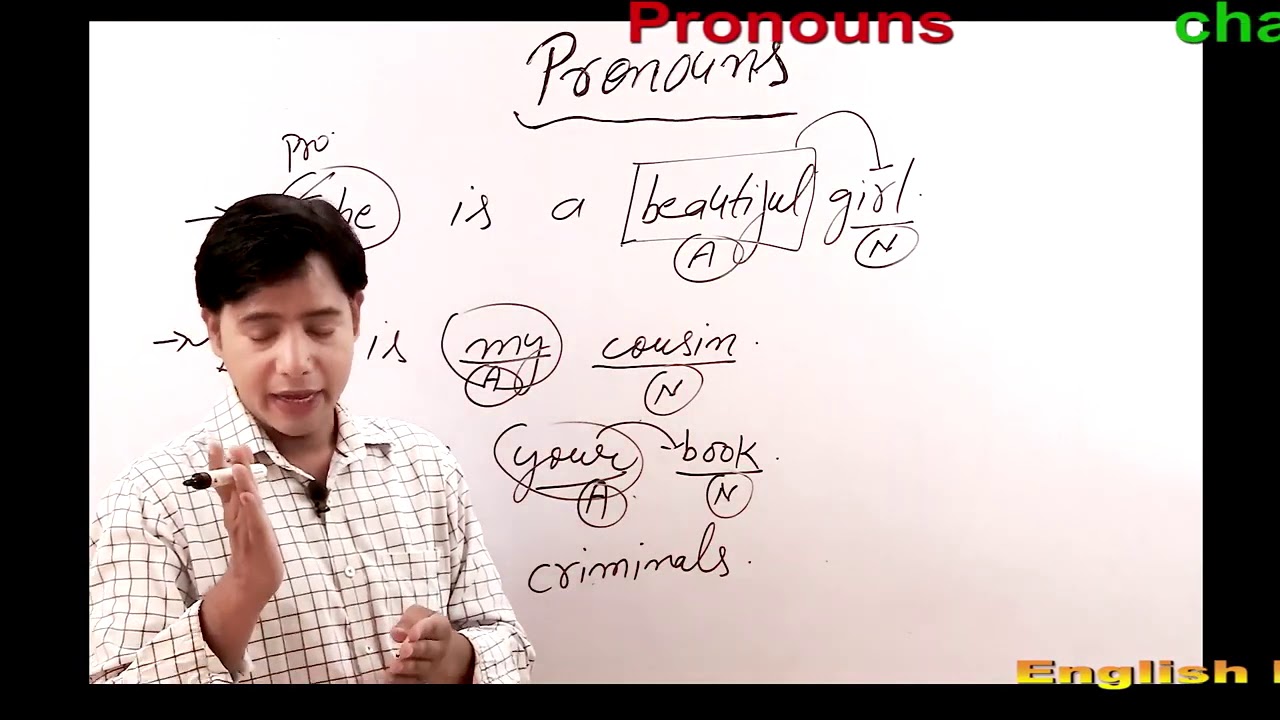 Pronouns
Pronouns
pro.
→ he is a beautiful girl.
A N
→ is my cousin.
A N
your book.
A N
criminals.
English